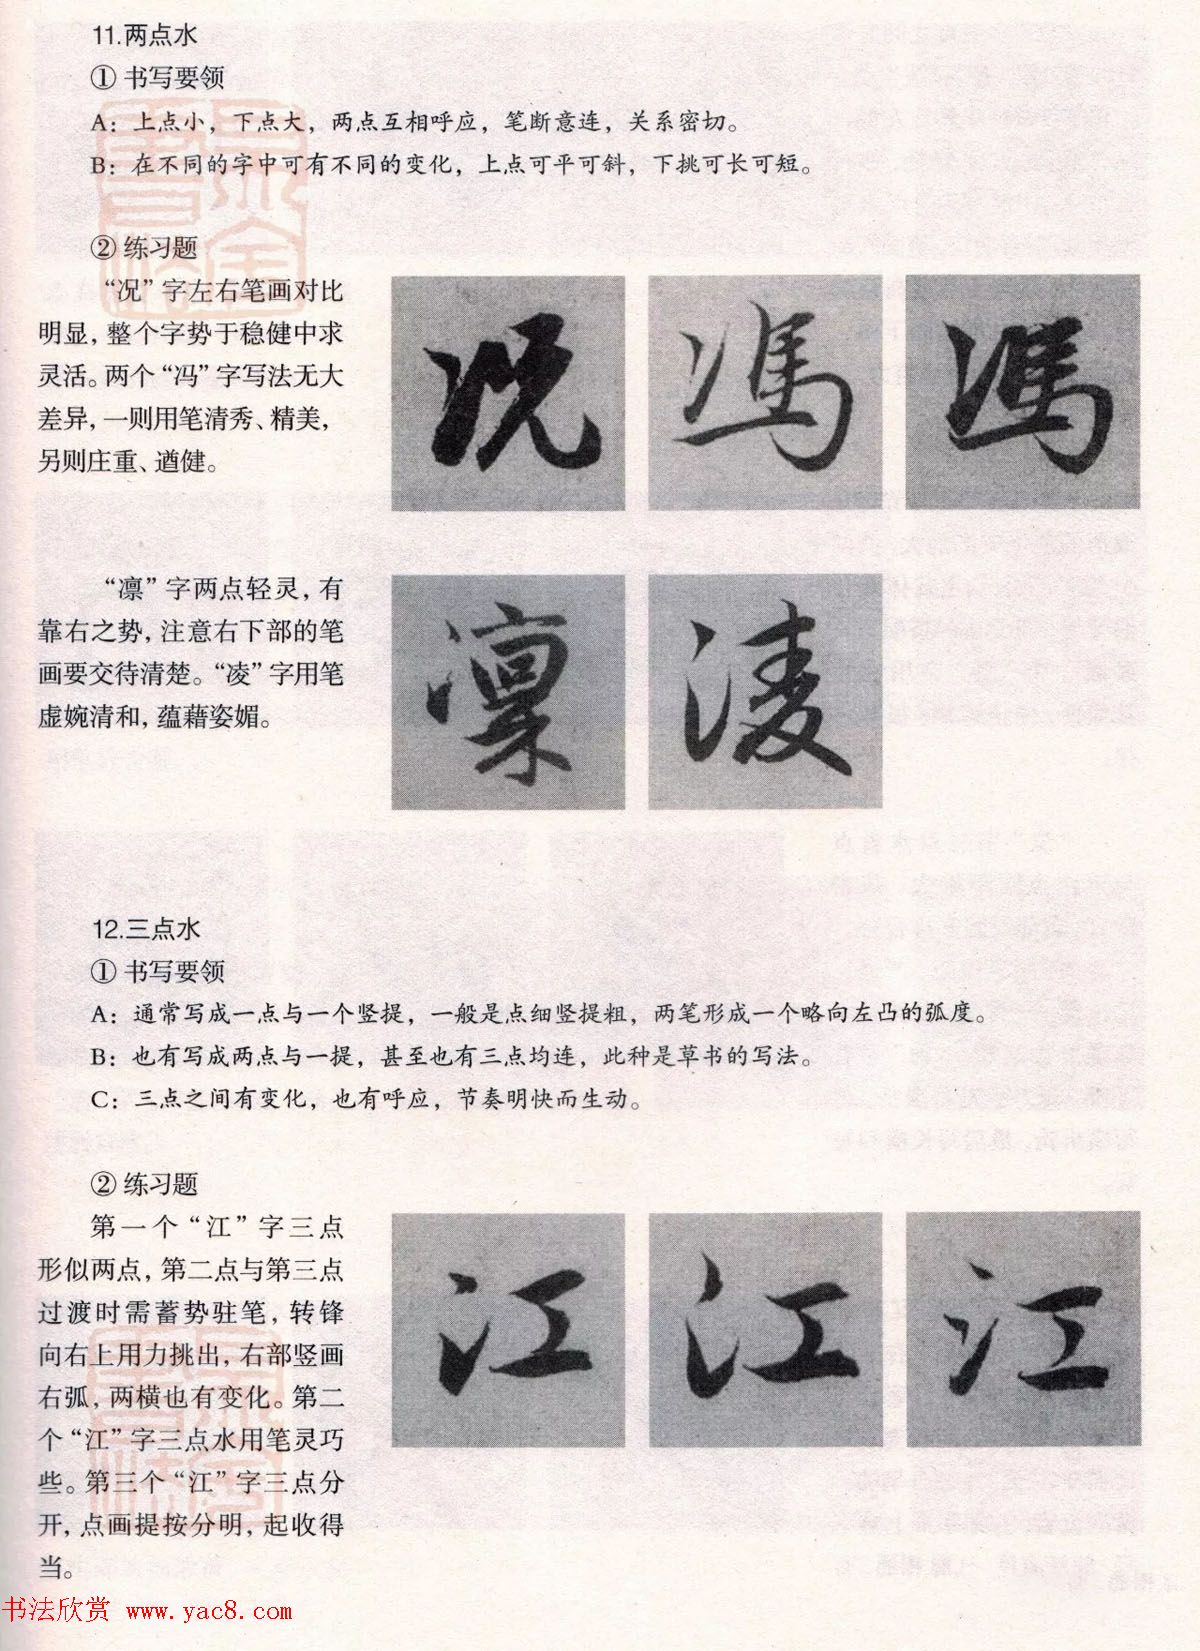 11.两点水
① 书写要领
A：上点小，下点大，两点互相呼应，笔断意连，关系密切。
B：在不同的字中可有不同的变化，上点可平可斜，下挑可长可短。
② 练习题
“况”字左右笔画对比
明显，整个字势于稳健中求
灵活。两个“冯”字写法无大
差异，一则用笔清秀、精美，
另则庄重、遒健。
况 馮 馮
“凛”字两点轻灵，有
靠右之势，注意右下部的笔
画要交待清楚。“凌”字用笔
虚婉清和，蕴藉姿媚。
凛 凌
12.三点水
① 书写要领
A：通常写成一点与一个竖提，一般是点细竖提粗，两笔形成一个略向左凸的弧度。
B：也有写成两点与一提，甚至也有三点均连，此种是草书的写法。
C：三点之间有变化，也有呼应，节奏明快而生动。
② 练习题
第一个“江”字三点
形似两点，第二点与第三点
过渡时需蓄势驻笔，转锋
向右上用力挑出，右部竖画
右弧，两横也有变化。第二
个“江”字三点水用笔灵巧
些。第三个“江”字三点分
开，点画提按分明，起收得
当。
江 江 江
书法欣赏 www.yac8.com